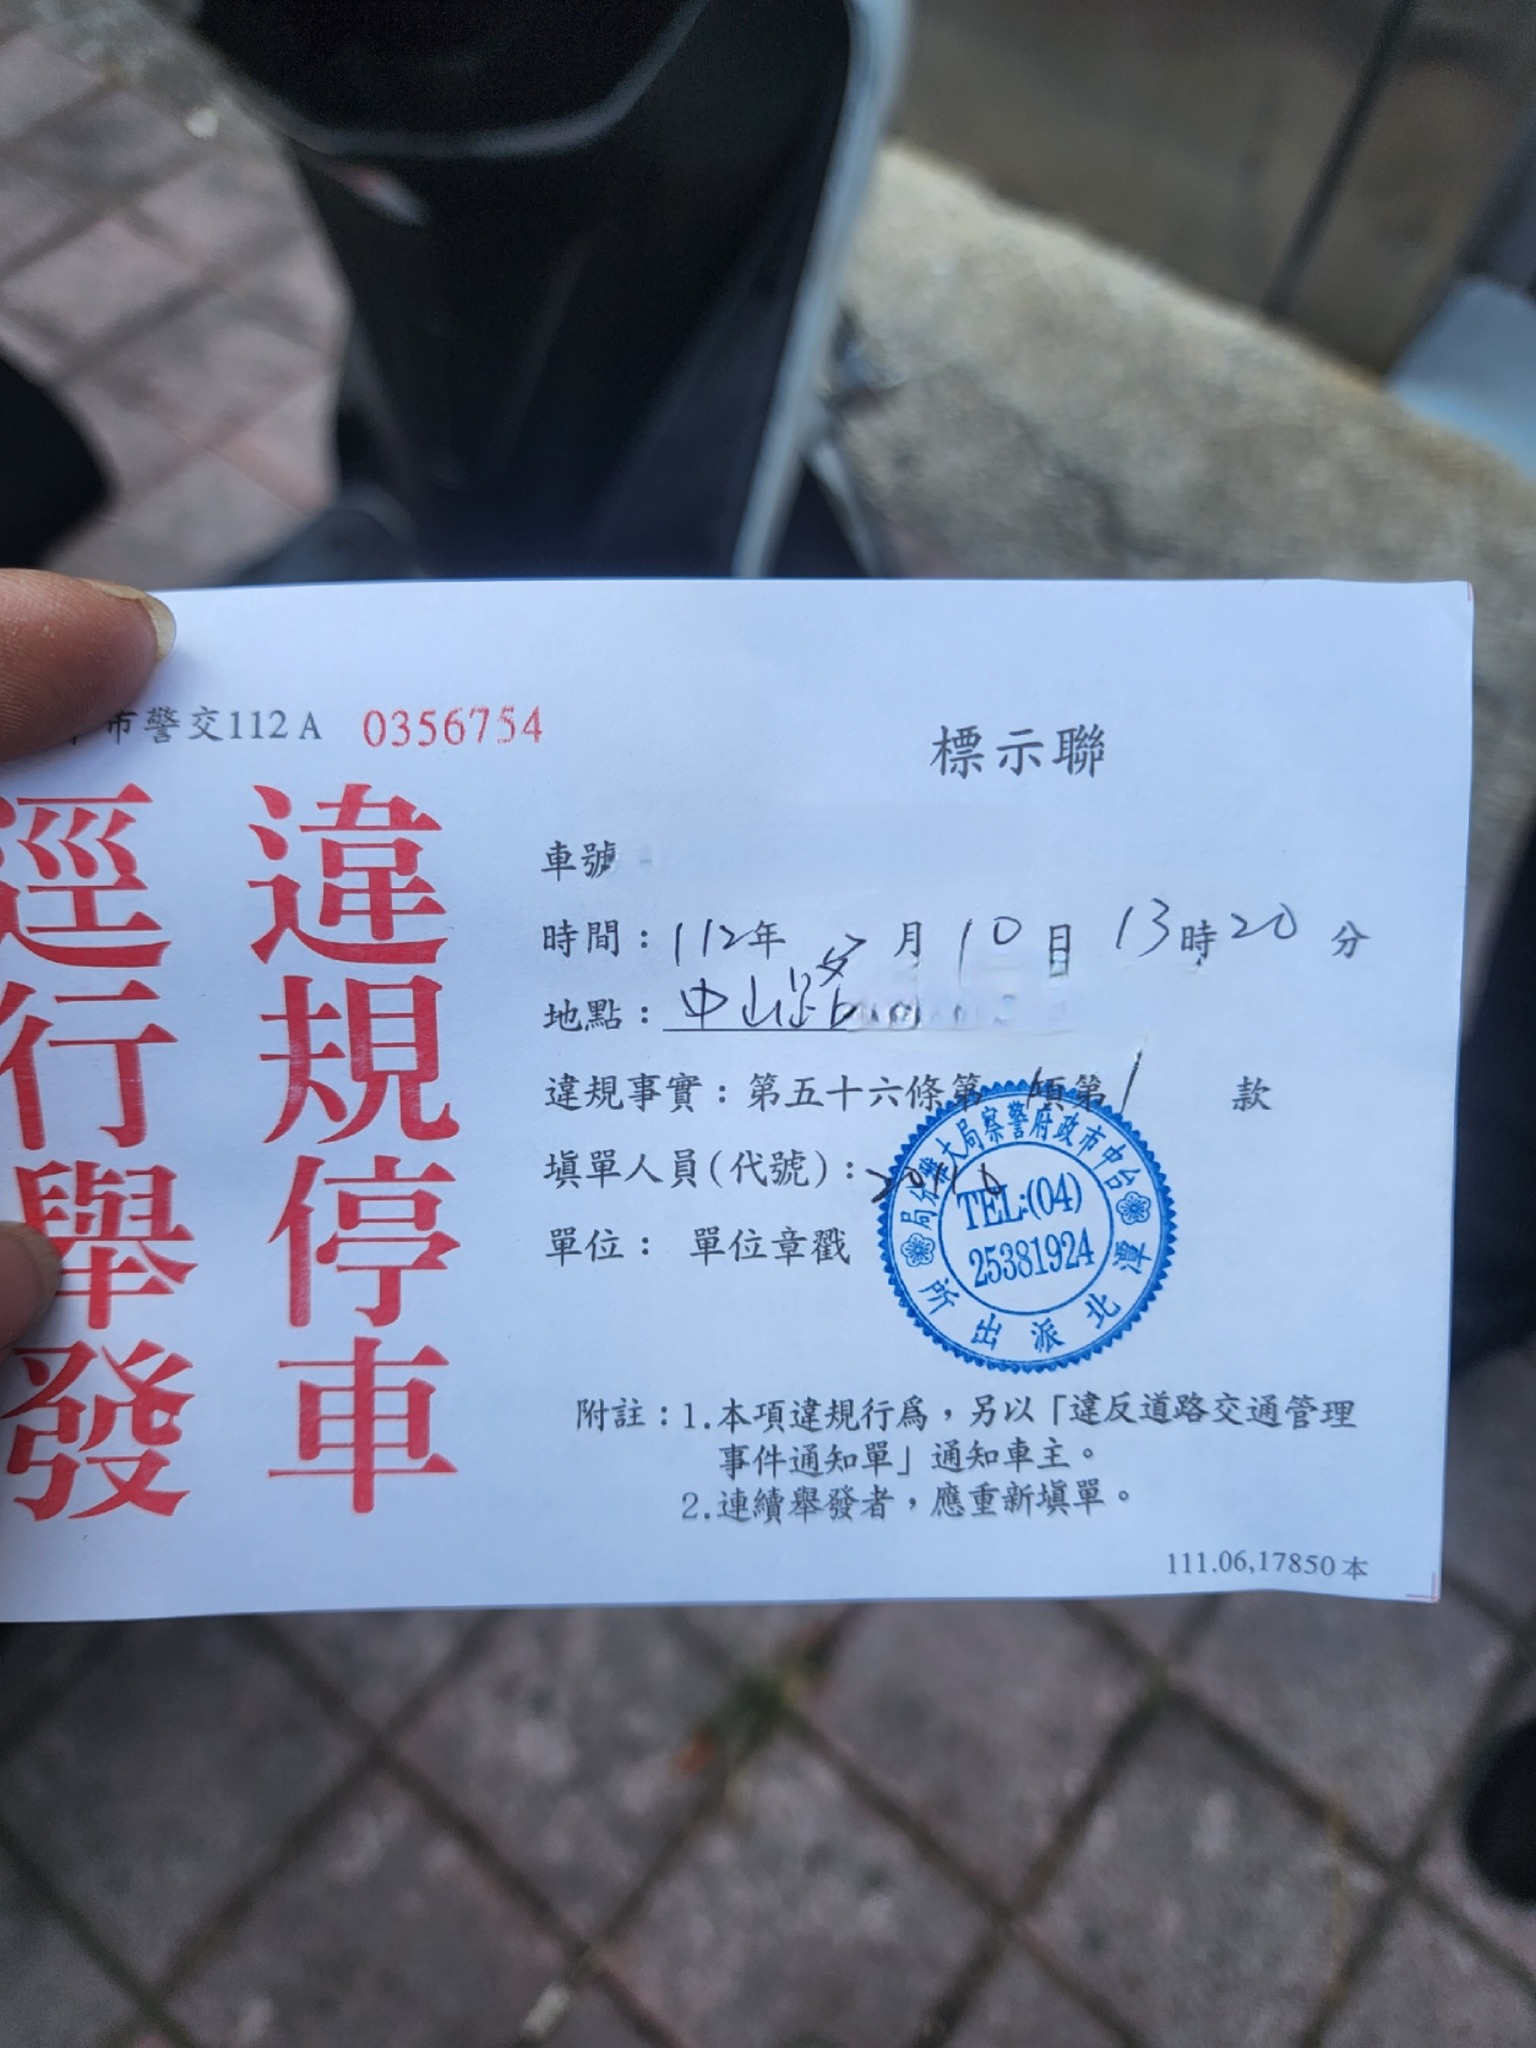 市警交112A 0356754
標示聯
違規停車
逕行舉發
車號
時間：112年 月 10日 13時20分
地點：中山路
違規事實：第五十六條第1項第1款
填單人員(代號)：
單位： 單位章戳
台中市政府警察局大雅分局
TEL:(04)
25381924
潭北派出所
附註：1.本項違規行為，另以「違反道路交通管理
事件通知單」通知車主。
2.連續舉發者，應重新填單。
111.06,17850本